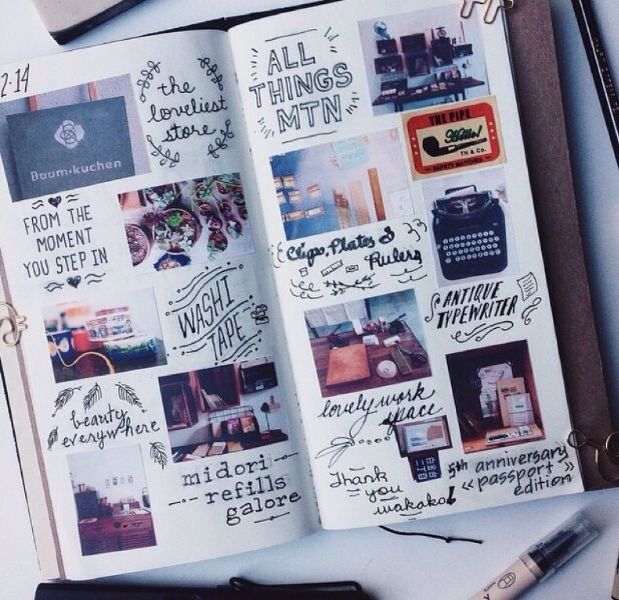 2·14
the
loveliest
store
Baum·kuchen
FROM THE
MOMENT
YOU STEP IN
WASHI
TAPE
beauty
everywhere
midori
refills
galore
ALL
THINGS
MTN
THE PIPE
TN & Co.
SAFETY MATCHES
Clips, Plates &
Rulers
ANTIQUE
TYPEWRITER
lovely work
space
Thank
you
wakako!
5th anniversary
"passport"
edition